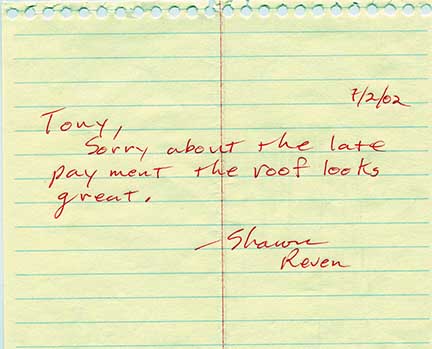 7/2/02
Tony,
Sorry about the late
payment the roof looks
great.
—Shawn
Reven